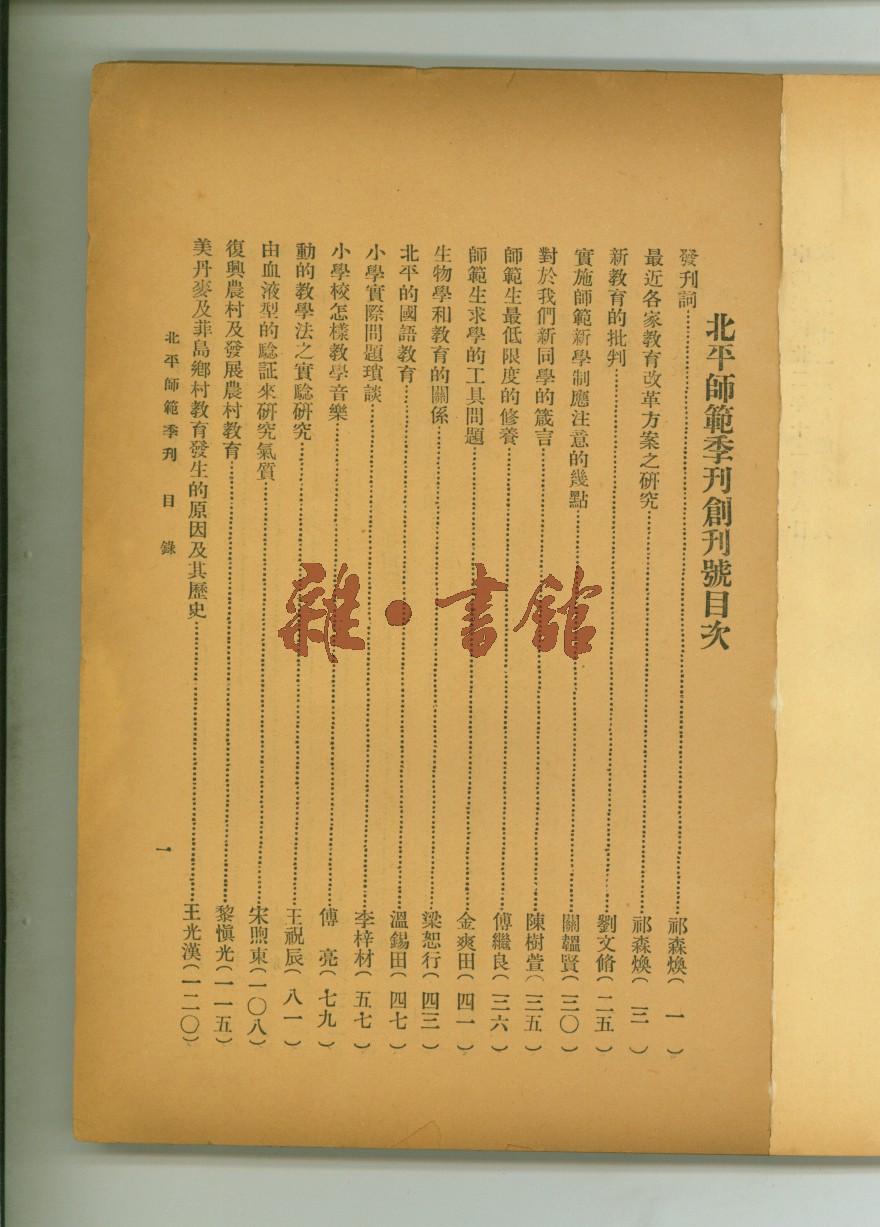 北平師範季刊創刊號目次
發刊詞……祁森煥(一)
最近各家教育改革方案之研究……祁森煥(三)
新教育的批判……劉文脩(二五)
實施師範新學制應注意的幾點……關韞賢(三〇)
對於我們新同學的箴言……陳樹萱(三五)
師範生最低限度的修養……傅繼良(三六)
師範生求學的工具問題……金爽田(四一)
生物學和教育的關係……梁恕行(四三)
北平的國語教育……溫錫田(四七)
小學實際問題瑣談……李梓材(五七)
小學校怎樣教學音樂……傅　亮(七九)
動的教學法之實驗研究……王祝辰(八一)
由血液型的驗証來研究氣質……宋煦東(一〇八)
復興農村及發展農村教育……黎愼光(一一五)
美丹麥及菲島鄉村教育發生的原因及其歷史……王光漢(一二〇)
北平師範季刊　目錄　一
雜·書館